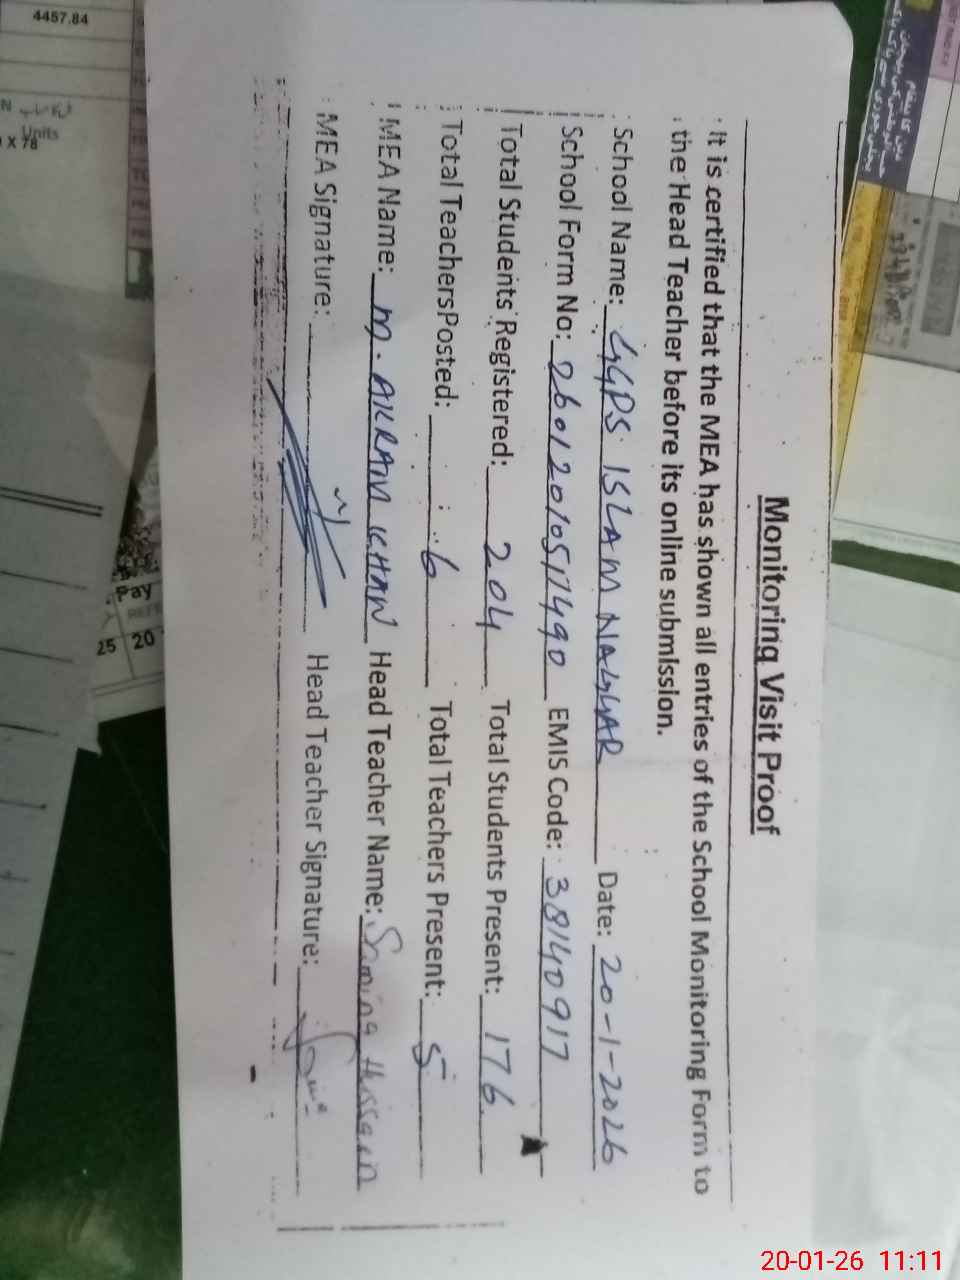 Monitoring Visit Proof
It is certified that the MEA has shown all entries of the School Monitoring Form to
the Head Teacher before its online submission.
School Name: GGPS ISLAM NAGGAR Date: 20-1-2026
School Form No: 26012010511490 EMIS Code: 38140917
Total Students Registered: 204 Total Students Present: 176
Total Teachers Posted: 6 Total Teachers Present: 5
MEA Name: M. AKRAM KHAN Head Teacher Name: Samina Hussain
MEA Signature: Head Teacher Signature:
4457.84
Units
X 78
Pay
25 20
20-01-26 11:11